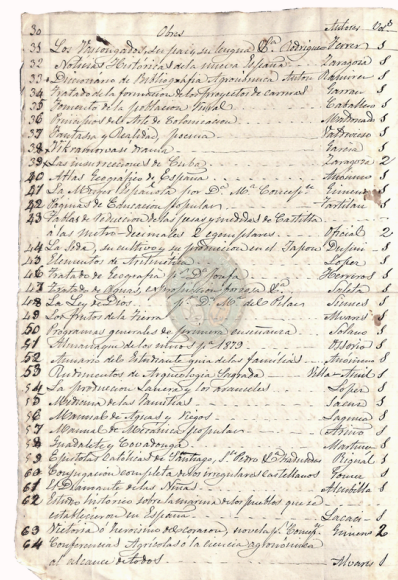 30 Obras Autores Vol.s
31 Los Vascongados, su pais, su lengua &.a Rodriguez Ferrer 1
32 Noticias Historicas de la nueva España Zaragoza 1
33 Diccionario de Bibliografia Agronómica Anton Ramirez 1
34 Tratado de la formacion de los proyectos de carreteras Garran 1
35 Fomento de la poblacion Rural Caballero 1
36 Principios del Arte de Colonizacion Maldonado 1
37 Fantasia y Realidad, poema Valdivieso 1
38 Vikramorvasi drama Garcia 1
39 Las insurrecciones de Cuba Zaragoza 2
40 Atlas Geografico de España Anónimo 1
41 La Mujer Española por D.a M.a Concep.n Gimeno 1
42 Paginas de Educacion popular 1
43 Tablas de reduccion de las pesas y medidas de Castilla
á las metro-decimales 2 ejemplares Oficial 2
44 La Seda, su cultivo y su produccion en el Japon Dupuy 1
45 Elementos de Aritmetica Lopez 1
46 Tratado de Geografia p.r D.a Josefa Herreros 1
47 Tratado de Aguas, expropiacion forzosa &.a 1
48 La Ley de Dios p.r D.a M.a del Pilar Sinues 1
49 Los frutos de la tierra Alvarez 1
50 Programas generales de primera enseñanza Solano 1
51 Almanaque de los para 1879 Ossorio 1
52 Anuario del Estudiante guia de las familias Anónimo 1
53 Rudimentos de Arqueologia Sagrada Villa-Amil 1
54 La produccion Lanera y los Aranceles Lopez 1
55 Medicina de las Familias Saenz 1
56 Manual de Aguas y riegos Laguna 1
57 Manual de Mecanica popular Ariño 1
58 Guadalete y Covadonga Martinez 1
59 Epistolas Catolicas de Santiago, S.n Pedro &.a traducidas 1
60 Conjugacion completa de los irregulares Castellanos Gomez 1
61 El Diamante de las Niñas 1
62 Estudio historico sobre la marina de los pueblos que se
establecieron en España Lacaci 1
63 Victoria ó heroismo del corazon, novela p.r Concep.n Gimeno 2
64 Conferencias Agricolas ó la ciencia agronómica
al alcance de todos Alvarez 1